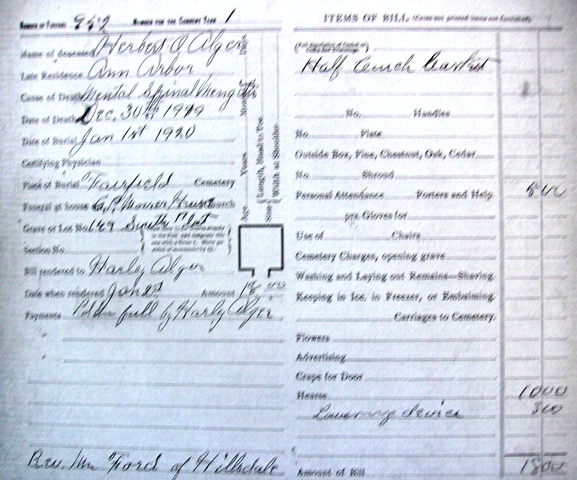 Number of Funeral 952 Number for the Current Year 1
Name of deceased Herbert O Alger
Late Residence Ann Arbor
Cause of Death Mental Spinal
Date of Death Dec. 30th
Date of Burial Jan 1st 1920
Certifying Physician
Place of Burial Fairfield Cemetery
Funeral at house Church
Grave or Lot No. 149 Smith Plat
Section No.
Bill rendered to Harley Alger
Date when rendered Jan 22 Amount 18 00
Payments Pd in full by Harly Alger
Rev. Mr Fords of Hillsdale
Age Years Months
Size Length, Head to Toe. Width at Shoulder
ITEMS OF BILL.
Half Couch Casket
No. Handles
No. Plate
Outside Box, Pine, Chestnut, Oak, Cedar
No. Shroud
Personal Attendance Porters and Help 5 00
prs. Gloves for
Use of Chairs
Cemetery Charges, opening grave
Washing and Laying out Remains—Shaving.
Keeping in Ice, in Freezer, or Embalming.
Carriages to Cemetery.
Flowers
Advertising
Crape for Door
Hearse 10 00
Lowering device 3 00
Amount of Bill 18 00